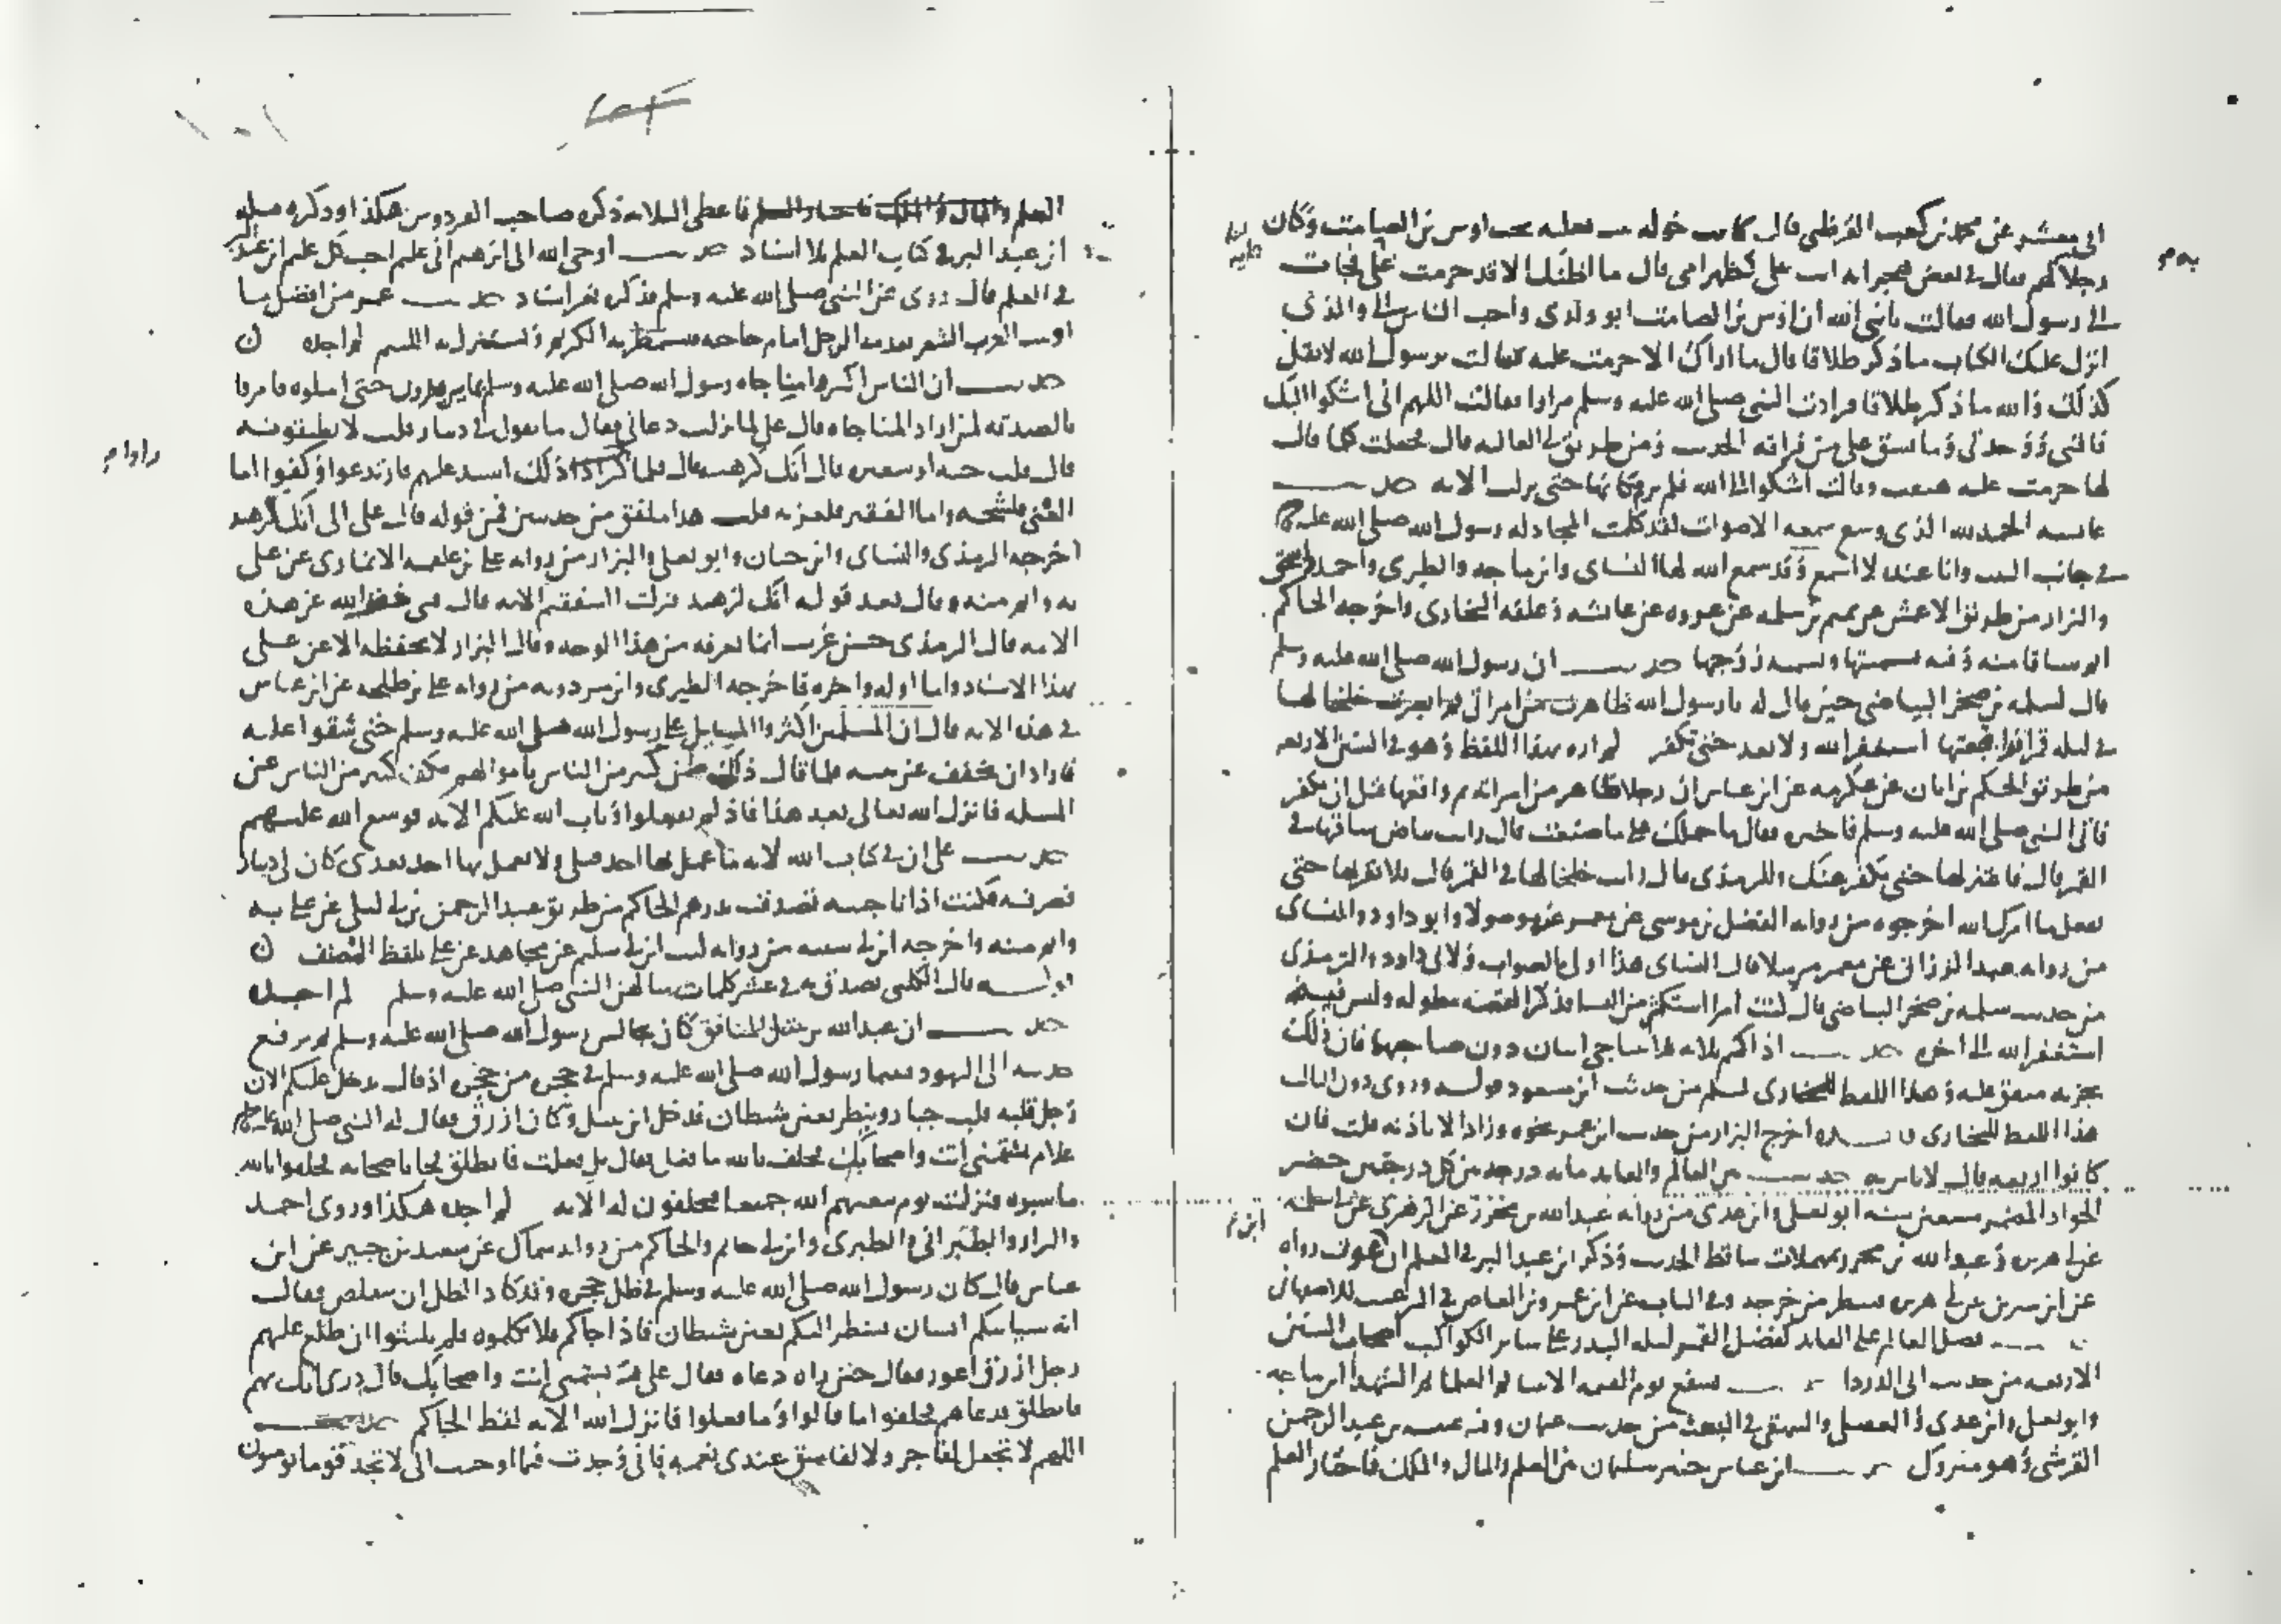 ابى معشر عن محمد بن كعب القرظي قال كانت خوله بنت ثعلبه تحت اوس بن الصامت وكان
رجلا به لمم فقال في بعض هجراته انت علي كظهر امي قال ما اظنك الا قد حرمت علي فجات
الى رسول الله فقالت يا نبي الله ان اوس بن الصامت ابو ولدي واحب الناس الي والذي
انزل عليك الكتاب ما ذكر طلاقا قال ما اراك الا حرمت عليه فقالت يرسول الله لا تقل
كذلك والله ما ذكر طلاقا فرادت النبي صلى الله عليه وسلم مرارا فقالت اللهم اني اشكوا اليك
فاقتي ووحدتي وما يشق علي من فراقه الحديث ومن طريق ابي العاليه قال فجعلت كلما قال
لها حرمت عليه هتفت وقالت اشكوا الى الله فلم ترم مكانها حتى نزلت الايه حديث
عايشه الحمد لله الذي وسع سمعه الاصوات لقد كلمت المجادله رسول الله صلى الله عليه
في جانب البيت وانا عنده لا اسمع وقد سمع الله لها النساي وابن ماجه والطبري واحمد
والبزار من طريق الاعمش عن تميم بن سلمه عن عروه عن عائشه وعلقه البخاري واخرجه الحاكم
اتم سياقا منه وفيه تسميتها وتسميه زوجها حديث ان رسول الله صلى الله عليه وسلم
قال لسلمه بن صخر البياضي حين قال له يا رسول الله ظاهرت من امراتي ثم ابصرت خلخالها
في ليله قمرا فواقعتها استغفر الله ولا تعد حتى تكفر لم اره بهذا اللفظ وهو في السنن الاربعه
من طريق الحكم بن ابان عن عكرمه عن ابن عباس ان رجلا ظاهر من امراته ثم واقعها قبل ان يكفر
فاتى النبي صلى الله عليه وسلم فاخبره فقال ما حملك على ما صنعت قال رايت بياض ساقها في
القمر قال فاعتزلها حتى تكفر عنك وللترمذي قال رايت خلخالها في القمر قال فلا تقربها حتى
تفعل ما امرك الله اخرجوه من روايه الفضل بن موسى عن معمر عنه موصولا وابو داود والنساي
من روايه عبد الرزاق عن معمر مرسلا قال النساي هذا اولى بالصواب ولابي داود والترمذي
من حديث سلمه بن صخر البياضي قال كنت امرا استكثر من النسا فذكر القصه مطوله وليس فيه
استغفر الله الى اخره حديث اذا كنتم ثلاثه فلا يتناجى اثنان دون صاحبهما فان ذلك
يحزنه متفق عليه وهذا اللفظ للبخاري لمسلم من حديث ابن مسعود قوله وروى دون الثالث
هذا اللفظ للبخاري اخرج البزار من حديث ابن عمر نحوه وزاد الا باذنه قلت فان
كانوا اربعه قال لا باس به حديث بين العالم والعابد مايه درجه بين كل درجتين حضر
الجواد المضمر سبعين سنه ابو يعلى وابن عدي من روايه عبد الله بن محرر عن الزهري عن ابي سلمه
عن ابي هريره وعبد الله بن محرر بمهملات ساقط الحديث وذكر ابن عبد البر في العلم ان عون رواه
عن ابن سيرين عن ابي هريره فينظر من خرجه وفي الباب عن ابن عمر وبن العاص في الترغيب للاصبهاني
حديث فضل العالم على العابد كفضل القمر ليله البدر على ساير الكواكب اصحاب السنن
الاربعه من حديث ابي الدردا حديث يشفع يوم القيمه الانبيا ثم العلما ثم الشهدا ابن ماجه
وابو يعلى وابن عدي والعقيلي والبيهقي في البعث من حديث عثمان وفيه عنبسه بن عبد الرحمن
القرشي وهو متروك حديث ابن عباس خير سليمان بين العلم والمال والملك فاختار العلم
العلم والمال والملك فاختار العلم فاعطي الثلاثه ذكره صاحب الفردوس هكذا وذكره
ابن عبد البر في كتاب العلم بلا اسناد حديث اوحى الله الى ابرهيم اني عليم احب كل عليم ابن عبد البر
في العلم قال روى عن النبي صلى الله عليه وسلم فذكره بغير اسناد حديث عمر من افضل ما
اوتيت العرب الشعر يقدمه الرجل امام حاجته فيستمطر به الكريم ويستنزل به اللئيم لم اجده
حديث ان الناس اكثروا مناجاه رسول الله صلى الله عليه وسلم بما يريدون حتى املوه فامروا
بالصدقه لمن اراد المناجاه قال علي لما نزلت دعاني فقال ما تقول في دينار قلت لا يطيقونه
قال قلت حبه او شعيره قال انك لزهيد قال فلما راوا ذلك اشتد عليهم فارتدعوا وكفوا اما
الغني فلشحه واما الفقير فلعزته قلت هذا ملفق من حديثين فمن قوله قال علي الى انك لزهيد
اخرجه الترمذي والنساي وابن حبان وابو يعلى والبزار من روايه علي بن علقمه الانماري عن علي
به واتم منه وقال بعد قوله انك لزهيد نزلت ااشفقتم الايه قال فبي خفف الله عن هذه
الامه قال الترمذي حسن غريب انما نعرفه من هذا الوجه وقال البزار لا نحفظه الا عن علي
بهذا الاسناد واما اوله واخره فاخرجه الطبري وابن مردويه من روايه علي بن طلحه عن ابن عباس
في هذه الايه قال ان المسلمين اكثروا المسايل على رسول الله صلى الله عليه وسلم حتى شقوا عليه
فاراد ان يخفف عن نبيه فلما قال ذلك ضن كثير من الناس باموالهم وكف كثير من الناس عن
المسله فانزل الله تعالى بعد هذا فاذ لم تفعلوا وتاب الله عليكم الايه فوسع الله عليهم
حديث علي ان في كتاب الله لايه ما عمل بها احد قبلي ولا يعمل بها احد بعدي كان لي دينار
فصرفته فكنت اذا ناجيته تصدقت بدرهم الحاكم من طريق عبد الرحمن بن ابي ليلى عن علي به
واتم منه واخرجه ابن ابي شيبه من روايه ليث ابن ابي سليم عن مجاهد عن علي بلفظ المصنف
قوله قال الكلبي تصدق به في عشر كلمات سالهن النبي صلى الله عليه وسلم لم اجده
حديث ان عبد الله بن نبتل المنافق كان يجالس رسول الله صلى الله عليه وسلم ثم يرفع
حديثه الى اليهود فبينما رسول الله صلى الله عليه وسلم في حجره من حجره اذ قال يدخل عليكم الان
رجل قلبه قلب جبار وينظر بعين شيطان فدخل ابن نبتل وكان ازرق فقال له النبي صلى الله عليه
علام تشتمني انت واصحابك فحلف بالله ما فعل فقال بلى فعلت فانطلق فجا باصحابه فحلفوا بالله
ما سبوه فنزلت يوم يبعثهم الله جميعا فيحلفون له الايه لم اجده هكذا وروى احمد
والبزار والطبراني والطبري وابن ابي حاتم والحاكم من روايه سماك عن سعيد بن جبير عن ابن
عباس قال كان رسول الله صلى الله عليه وسلم في ظل حجره وقد كاد الظل ان يتقلص فقال
انه سياتيكم انسان ينظر اليكم بعين شيطان فاذا جاكم فلا تكلموه فلم يلبثوا ان طلع عليهم
رجل ازرق اعور فقال حين راه دعاه فقال علي مه تشتمني انت واصحابك قال ذرني اتك بهم
فانطلق فدعاهم فحلفوا ما قالوا وما فعلوا فانزل الله الايه لفظ الحاكم حديث
اللهم لا تجعل لفاجر ولا لفاسق عندي نعمه فاني وجدت فيما اوحيت الي لا تجد قوما يومنون